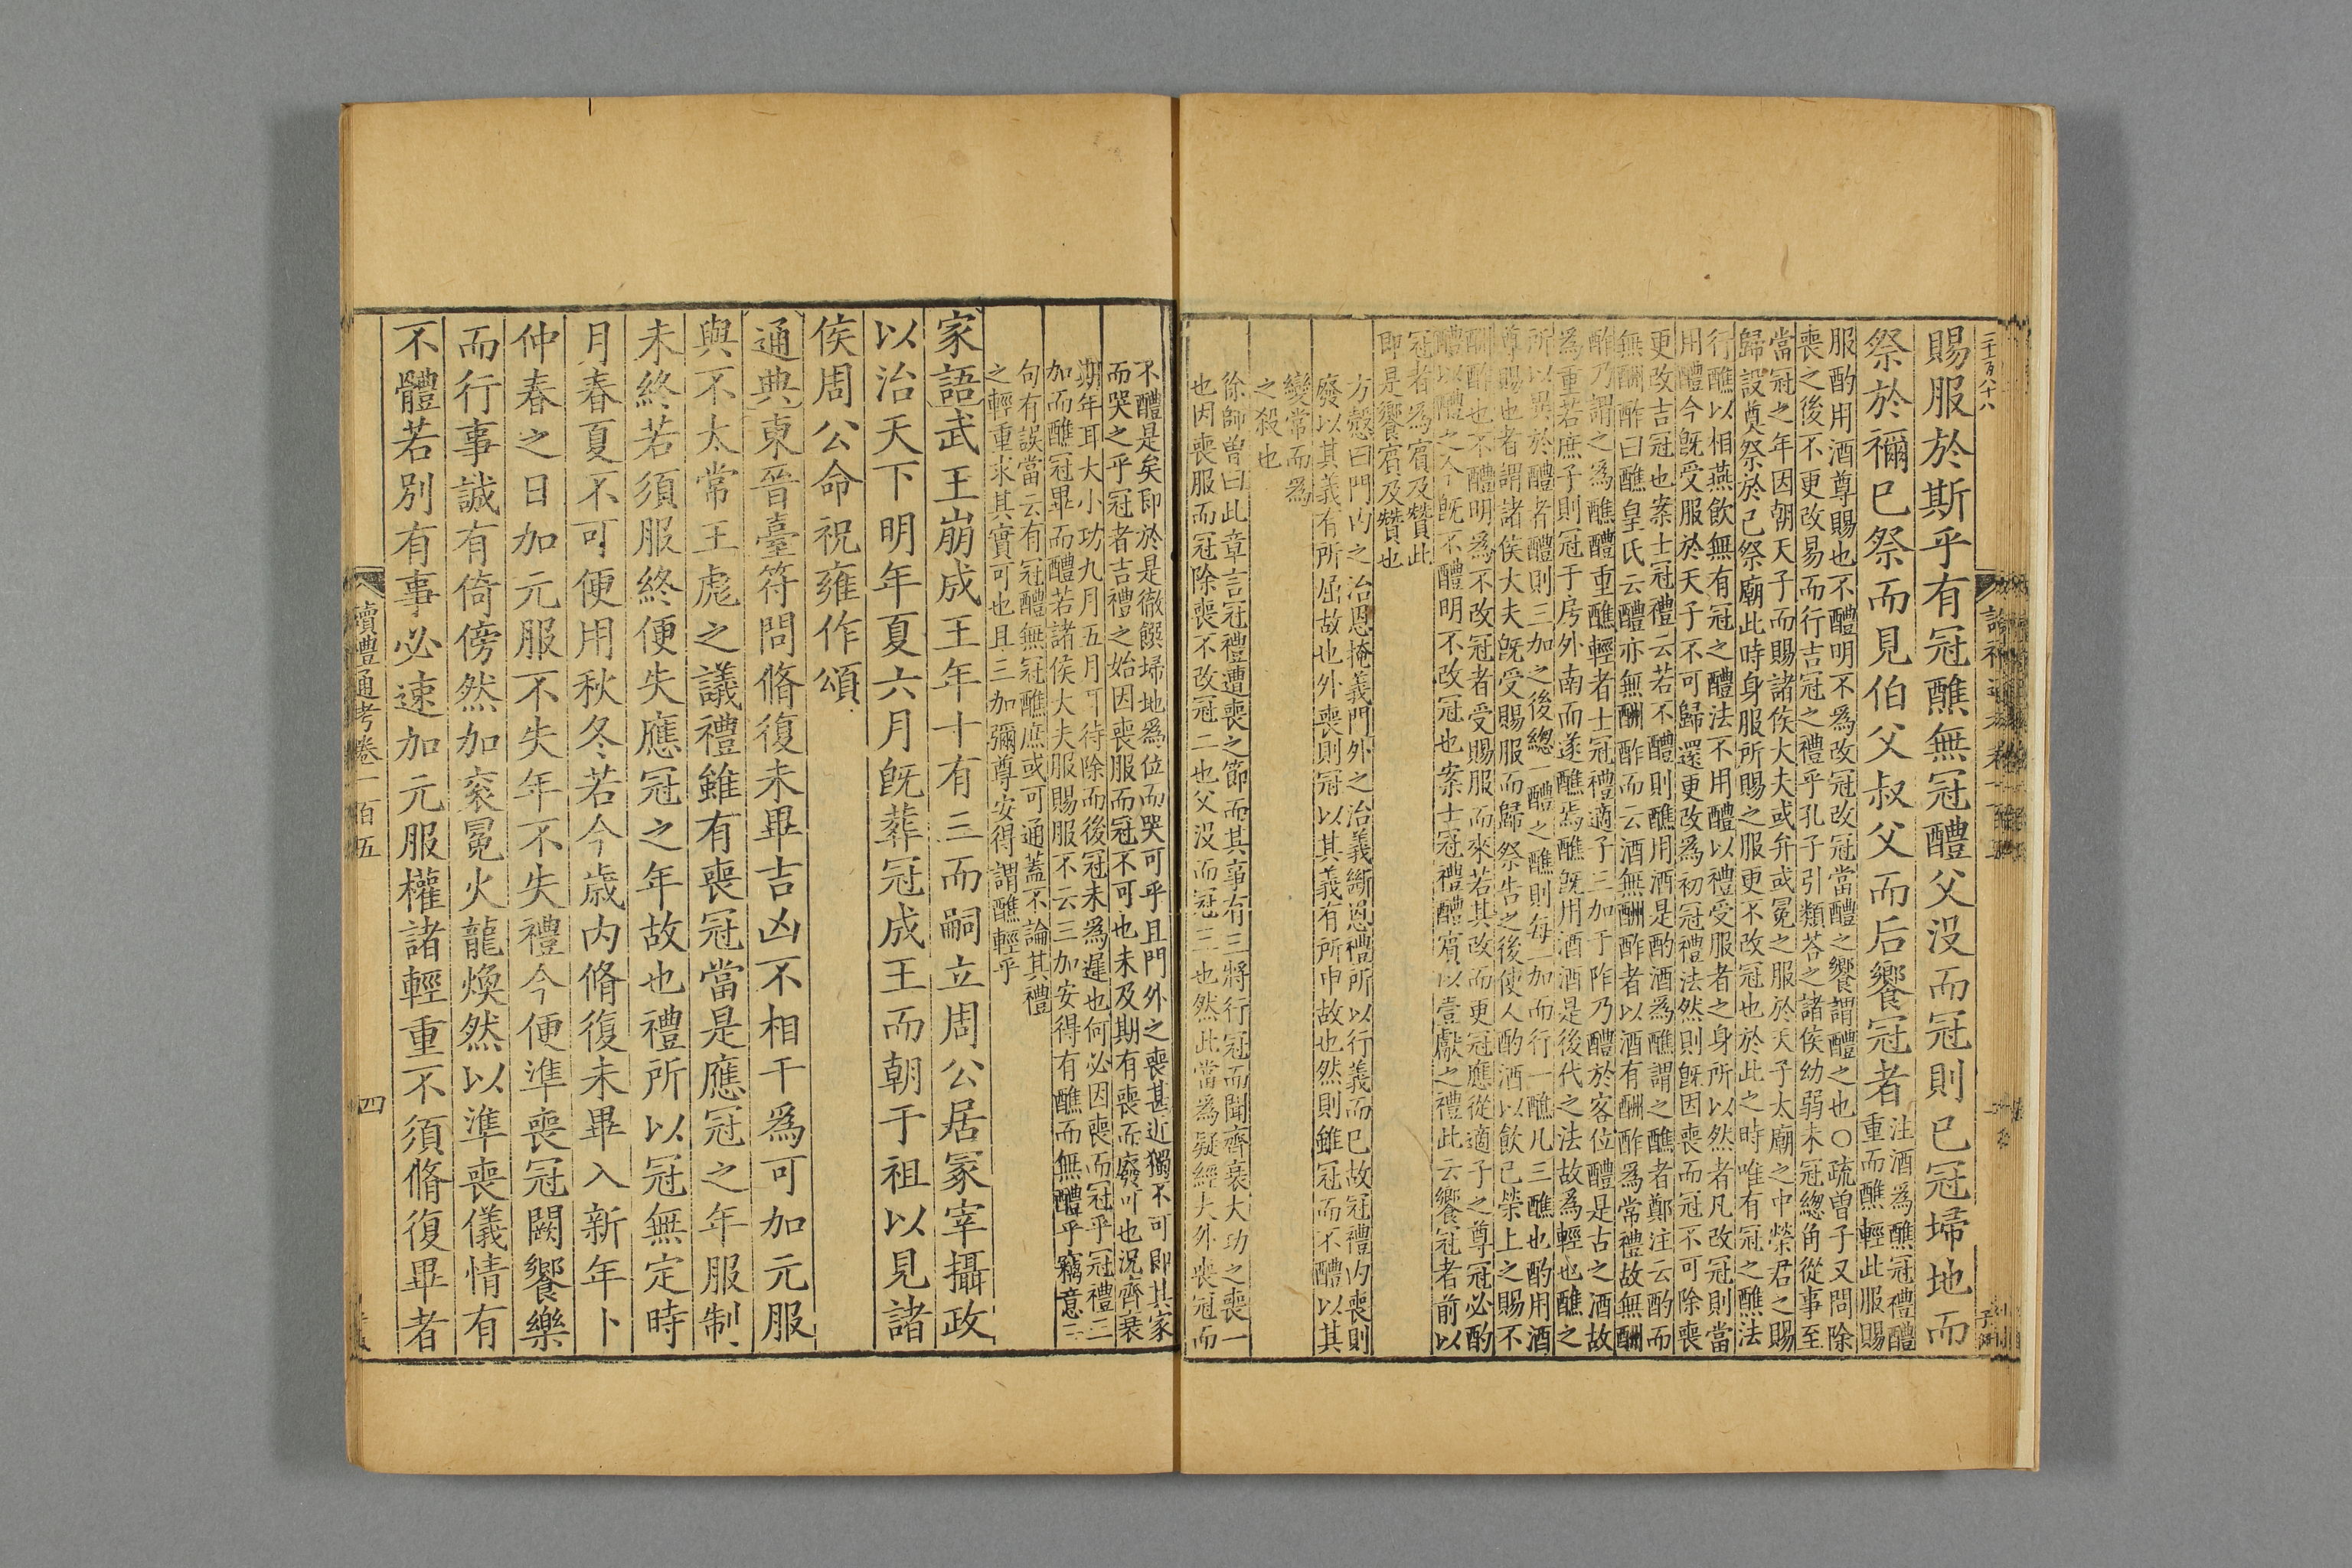 賜服於斯乎有冠醮無冠醴父没而冠則已冠埽地而
祭於禰已祭而見伯父叔父而后饗冠者
注酒爲醮冠禮醴
重而醮輕此服賜
服酌用酒尊賜也不醴明不爲改冠改冠當醴之饗謂醴之也〇疏曾子又問除
喪之後不更改易而行吉冠之禮乎孔子引類荅之諸侯幼弱未冠總角從事至
當冠之年因朝天子而賜諸侯大夫或弁或冕之服於天子太廟之中榮君之賜
歸設奠祭於己祭廟此時身服所賜之服更不改冠也於此之時唯有冠之醮法
行醮以相燕飲無有冠之醴法不用醴以禮受服者之身所以然者凡改冠則當
用醴今旣受服於天子不可歸還更改爲初冠禮法然則旣因喪而冠不可除喪
更改吉冠也案士冠禮云若不醴則醮用酒是酌酒爲醮謂之醮者鄭注云酌而
無酬酢曰醮皇氏云醴亦無酬酢而云酒無酬酢者以酒有酬酢爲常禮故無酬
酢乃謂之爲醮醴重醮輕者士冠禮適子三加于阼乃醴於客位醴是古之酒故
爲重若庶子則冠于房外南而遂醮焉醮旣用酒酒是後代之法故爲輕也醮之
所以異於醴者醴則三加之後總一醴之醮則每一加而行一醮凡三醮也酌用酒
尊賜也者謂諸侯大夫旣受賜服而歸祭告之後使人酌酒以飲己榮上之賜不
酬酢也不醴明爲不改冠者受賜服而來若其改而更冠應從適子之尊冠必酌
醴以醴之今旣不醴明不改冠也案士冠禮醴賓以壹獻之禮此云饗冠者前以
冠者爲賓及贊此
即是饗賓及贊也
方慤曰門内之治恩掩義門外之治義斷恩禮所以行義而已故冠禮内喪則
廢以其義有所屈故也外喪則冠以其義有所申故也然則雖冠而不醴以其
變常而爲
之殺也
徐師曾曰此章言冠禮遭喪之節而其事有三將行冠而聞齊衰大功之喪一
也因喪服而冠除喪不改冠二也父没而冠三也然此當爲疑經夫外喪冠而
不醴是矣即於是徹饌埽地爲位而哭可乎且門外之喪甚近獨不可即其家
而哭之乎冠者吉禮之始因喪服而冠不可也未及期有喪而廢可也況齊衰
期年耳大小功九月五月可待除而後冠未爲遲也何必因喪而冠乎冠禮三
加而醮冠畢而醴若諸侯大夫服賜服不云三加安得有醮而無醴乎竊意二
句有誤當云有冠醴無冠醮庶或可通蓋不論其禮
之輕重求其實可也且三加彌尊安得謂醮輕乎
家語武王崩成王年十有三而嗣立周公居冢宰攝政
以治天下明年夏六月旣葬冠成王而朝于祖以見諸
侯周公命祝雍作頌
通典東晉臺符問脩復未畢吉凶不相干爲可加元服
與不太常王彪之議禮雖有喪冠當是應冠之年服制
未終若須服終便失應冠之年故也禮所以冠無定時
月春夏不可便用秋冬若今歳内脩復未畢入新年卜
仲春之日加元服不失年不失禮今便準喪冠闕饗樂
而行事誠有倚傍然加衮冕火龍煥然以準喪儀情有
不體若別有事必速加元服權諸輕重不須脩復畢者
讀禮通考卷一百五
四